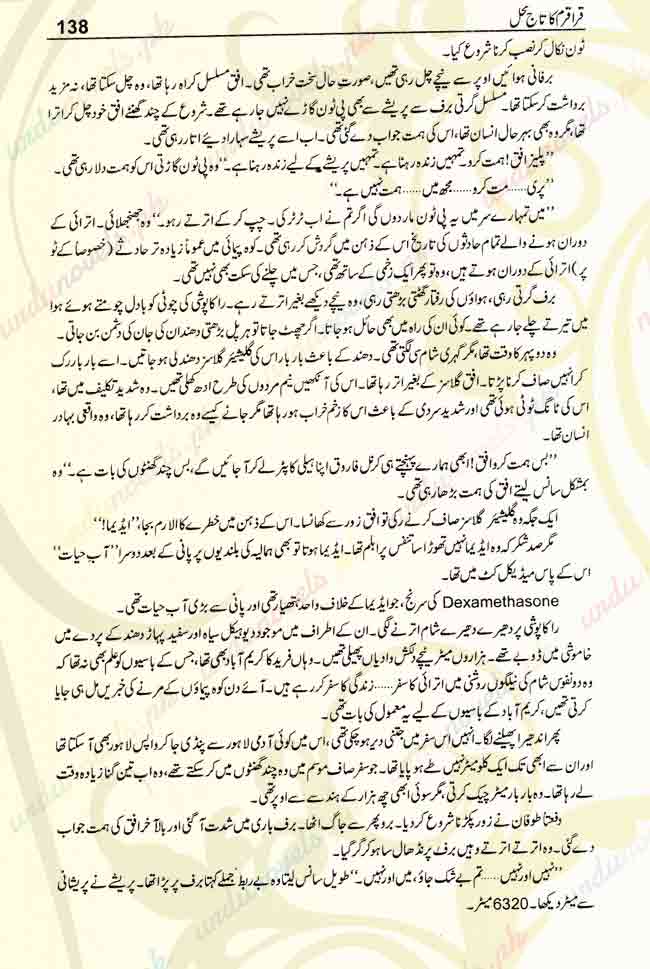 قراقرم کا تاج محل
138
ٹون نکال کر نصب کرنا شروع کیا۔
برفانی ہوائیں اوپر سے نیچے چل رہی تھیں، صورت حال سخت خراب تھی۔ افق مسلسل کراہ رہا تھا، وہ چل سکتا تھا، نہ مزید
برداشت کر سکتا تھا۔ مسلسل گرتی برف سے پریشے سے بھی پی ٹون گاڑے نہیں جا رہے تھے۔ شروع کے چند گھنٹے افق خود چل کر اترا
تھا، مگر وہ بھی بہرحال انسان تھا، اس کی ہمت جواب دے گئی تھی۔ اب اسے پریشے سہارا دیئے اتار رہی تھی۔
”پلیز افق! ہمت کرو۔ تمہیں زندہ رہنا ہے۔ تمہیں پریشے کے لیے زندہ رہنا ہے۔“ وہ پی ٹون گاڑتی اس کو ہمت دلا رہی تھی۔
”پری...... مت کرو...... مجھ میں...... ہمت نہیں ہے۔“
”میں تمہارے سر میں یہ پی ٹون مار دوں گی اگر تم نے اب ٹرٹر کی۔ چپ کر کے اترتے رہو۔“ وہ جھنجھلائی۔ اترائی کے
دوران ہونے والے تمام حادثوں کی تاریخ اس کے ذہن میں گردش کر رہی تھی۔ کوہ پیمائی میں عموماً زیادہ تر حادثے (خصوصاً کے ٹو
پر) اترائی کے دوران ہوتے ہیں، وہ تو پھر ایک زخمی کے ساتھ تھی، جس میں چلنے کی سکت بھی نہیں تھی۔
برف گرتی رہی، ہواؤں کی رفتار گھٹتی بڑھتی رہی، وہ نیچے دیکھے بغیر اترتے رہے۔ راکاپوشی کی چوٹی کو بادل چومتے ہوئے ہوا
میں تیرتے چلے جا رہے تھے۔ کوئی ان کی راہ میں بھی حائل ہو جاتا۔ اگر چھٹ جاتا تو ہر پل بڑھتی دھند ان کی جان کی دشمن بن جاتی۔
وہ دوپہر کا وقت تھا، مگر گہری شام سی لگتی تھی۔ دھند کے باعث بار بار اس کی گلیشیئر گلاسز دھندلی ہو جاتیں۔ اسے بار بار رک
کر انہیں صاف کرنا پڑتا۔ افق گلاسز کے بغیر اتر رہا تھا۔ اس کی آنکھیں نیم مردوں کی طرح ادھ کھلی تھیں۔ وہ شدید تکلیف میں تھا،
اس کی ٹانگ ٹوٹی ہوئی تھی اور شدید سردی کے باعث اس کا زخم خراب ہو رہا تھا مگر جانے کیسے وہ برداشت کر رہا تھا، وہ واقعی بہادر
انسان تھا۔
”بس ہمت کرو افق! ابھی ہمارے پہنچتے ہی کرنل فاروق اپنا ہیلی کاپٹر لے کر آ جائیں گے، بس چند گھنٹوں کی بات ہے۔“ وہ
بمشکل سانس لیتے افق کی ہمت بڑھا رہی تھی۔
ایک جگہ وہ گلیشیئر گلاسز صاف کرنے رکی تو افق زور سے کھانسا۔ اس کے ذہن میں خطرے کا الارم بجا، ”ایڈیما!“
مگر صد شکر کہ وہ ایڈیما نہیں تھوڑا سا تنفس پرابلم تھا۔ ایڈیما ہوتا تو بھی ہمالیہ کی بلندیوں پر پانی کے بعد دوسرا ”آب حیات“
اس کے پاس میڈیکل کٹ میں تھا۔
Dexamethasone کی سرنج، جو ایڈیما کے خلاف واحد ہتھیار تھی اور پانی سے بڑی آب حیات تھی۔
راکاپوشی پر دھیرے دھیرے شام اترنے لگی۔ ان کے اطراف میں موجود دیو ہیکل سیاہ اور سفید پہاڑ دھند کے پردے میں
خاموشی میں ڈوبے تھے۔ ہزاروں میٹر نیچے دلکش وادیاں پھیلی تھیں۔ وہاں فرید کا کریم آباد بھی تھا، جس کے باسیوں کو علم بھی نہ تھا کہ
وہ دو نفوس شام کی نیلگوں روشنی میں اترائی کا سفر...... زندگی کا سفر کر رہے ہیں۔ آئے دن کوہ پیماؤں کے مرنے کی خبریں مل ہی جایا
کرتی تھیں، کریم آباد کے باسیوں کے لیے یہ معمول کی بات تھی۔
پھر اندھیرا پھیلنے لگا۔ انہیں اس سفر میں جتنی دیر ہو چکی تھی، اس میں کوئی آدمی لاہور سے پنڈی جا کر واپس لاہور بھی آ سکتا تھا
اور ان سے ابھی تک ایک کلومیٹر نہیں طے ہو پایا تھا۔ جو سفر صاف موسم میں وہ چند گھنٹوں میں کر سکتے تھے، وہ اب تین گنا زیادہ وقت
لے رہا تھا۔ وہ بار بار میٹر چیک کرتی، مگر سوئی ابھی چھ ہزار کے ہندسے سے اوپر تھی۔
دفعتاً طوفان نے زور پکڑنا شروع کر دیا۔ برو پھر سے جاگ اٹھا۔ برف باری میں شدت آ گئی اور بالآخر افق کی ہمت جواب
دے گئی۔ وہ اترتے اترتے وہیں برف پر نڈھال سا ہو کر گر گیا۔
”نہیں اور نہیں...... تم بے شک جاؤ، میں اور نہیں۔“ طویل سانس لیتا وہ بے ربط جملے کہتا برف پر پڑا تھا۔ پریشے نے پریشانی
سے میٹر دیکھا۔ 6320 میٹر۔